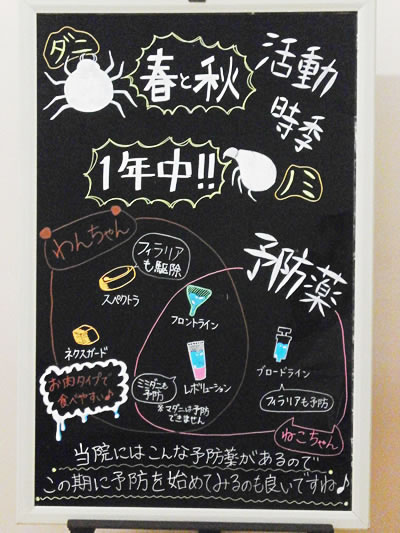 ダニ
春と秋
活動
時季
1年中!!
ノミ
わんちゃん
フィラリア
も駆除
スペクトラ
予防薬
フロントライン
ネクスガード
お肉タイプで
食べやすい♪
ミミダニも
予防
レボリューション
※マダニは予防
できません
ブロードライン
フィラリアも予防
ねこちゃん
当院にはこんな予防薬があるので
この期に予防を始めてみるのも良いですね♪